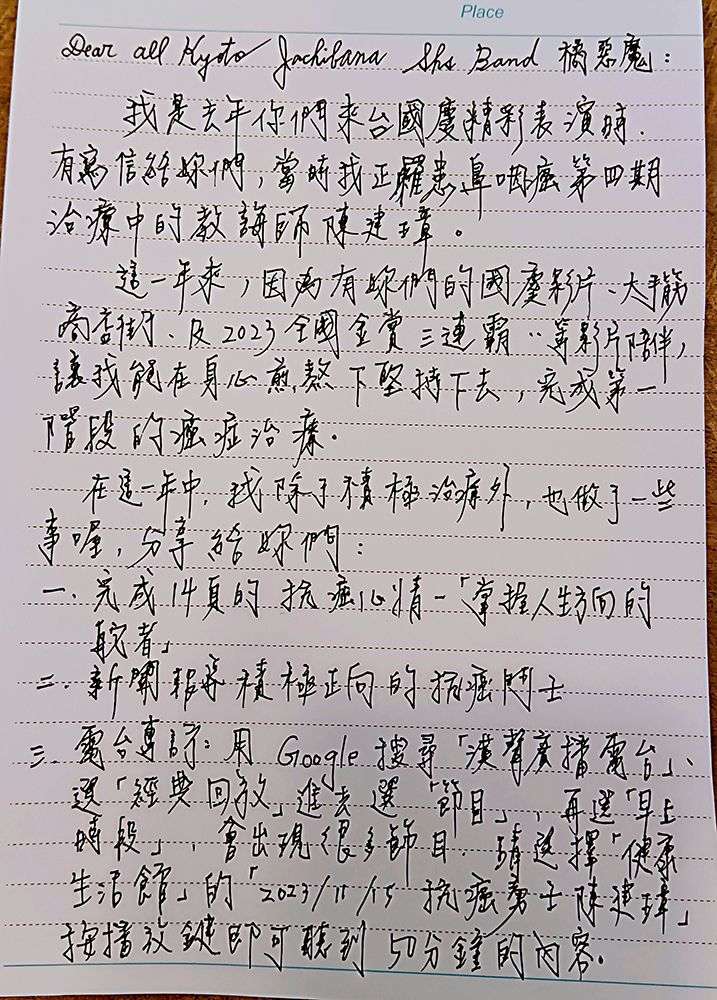 Place
Dear all Kyoto Tachibana Shs Band 橘惡魔：
我是去年你們來台國慶精彩表演時，
有寫信給妳們，當時我正罹患鼻咽癌第四期
治療中的教誨師陳建璋。
這一年來，因為有妳們的國慶影片、大手筋
商店街、及2023全國金賞三連霸‥等影片陪伴，
讓我能在身心煎熬下堅持下去，完成第一
階段的癌症治療。
在這一年中，我除了積極治療外，也做了一些
事喔，分享給妳們：
一、完成14頁的抗癌心情－「掌握人生方向的
舵者」
二、新聞報導積極正向的抗癌鬥士
三、電台專訪：用Google搜尋「漢聲廣播電台」、
選「經典回放」進去選「節目」，再選「早上
時段」，會出現很多節目．請選擇「健康
生活館」的「2023/11/15 抗癌勇士陳建璋」
按播放鍵即可聽到50分鐘的內容。